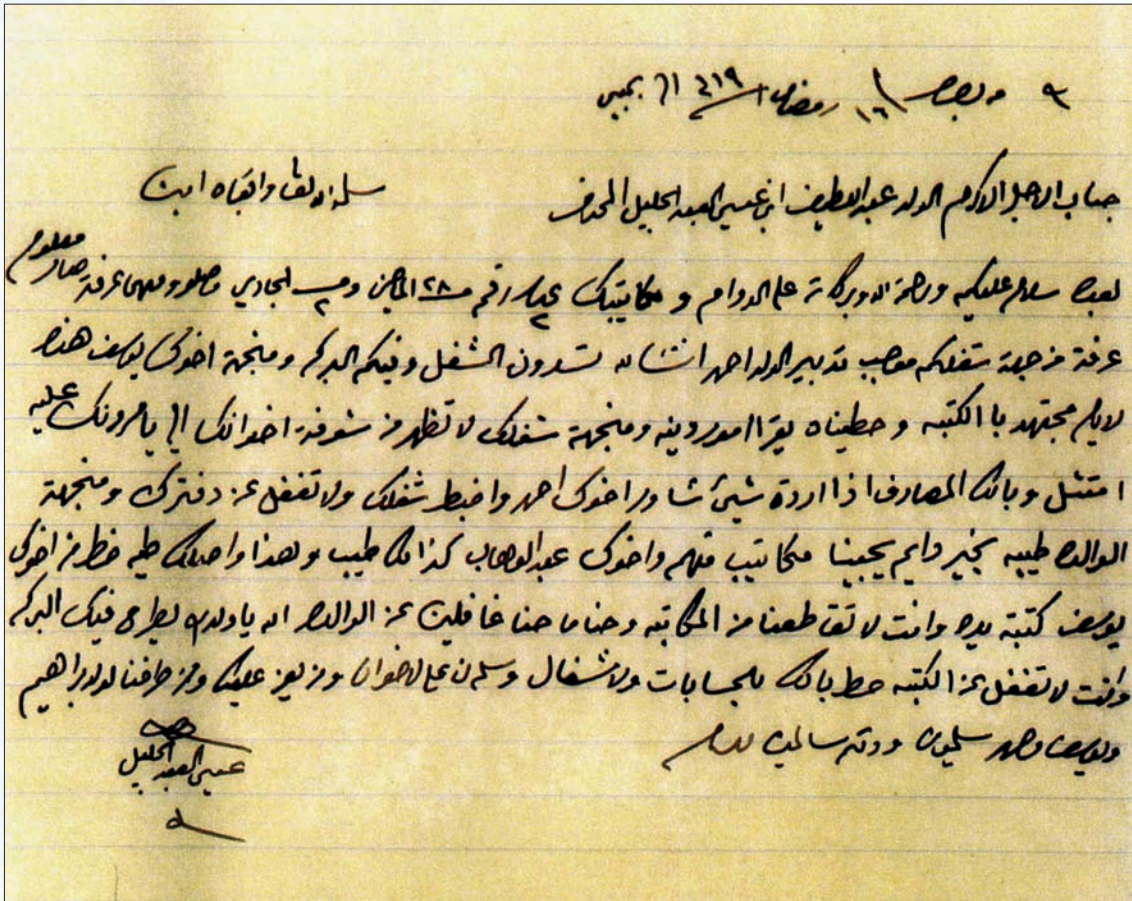 من بصره ١٦ رمضان ١٣١٩ الى بمبي
جناب الاجل الاكرم الولد عبداللطيف ابن عيسى العبد الجليل المحترم سلمه الله تعا وابقاه امين
بعده سلام عليكم ورحمة الله وبركاته على الدوام و مكاتيبك عدد ٢ رقم ٢٨ الماضي و الجاري وصلو ومنهن عرفة صار معلوم
عرفة من جهة شغلكم موجب تدبير الولد احمد انشاء الله تسدون الشغل وفيكم البركه ومنجهة اخوك يوسف هذه
لايام مجتهد با الكتبه و حطيناه يقرا امور دينه ومنجهة شغلك لا تظهر من شوفة اخوانك الي يامرونك عليه
امتثل وبالك المصارف اذا اردة شيئ شاور اخوك احمد واضبط شغلك ولا تغفل عن دفترك ومنجهة
الوالده طيبه بخير دايم يجينا مكاتيب منهم واخوك عبدالوهاب كذالك طيب وهذا واصلك طيه خط من اخوك
يوسف كتبته بيده وانت لا تقاطعنا من المكاتبه وحنا ما حنا غافلين عن الوالده الله ياولدي يطرح فيك البركه
وانت لا تغفل عن الكتبه حط بالك للحسابات ولاشغال وسلم لنا على لاخوان ومن يعز عليك ومن طرفنا لولد براهيم
ويوسف واحمد يسلمون ودمتم سالمين
عيسى العبد الجليل